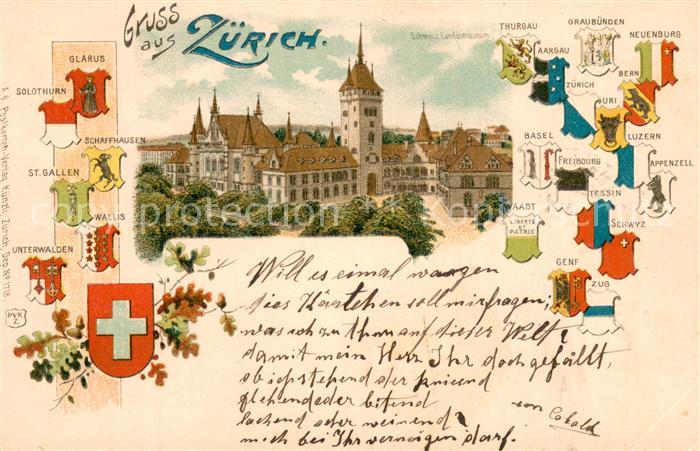 Gruss
aus
ZÜRICH.
Schweiz. Landesmuseum
GLARUS
SOLOTHURN
SCHAFFHAUSEN
ST. GALLEN
WALLIS
UNTERWALDEN
THURGAU
GRAUBÜNDEN
NEUENBURG
AARGAU
BERN
ZÜRICH
URI
LUZERN
BASEL
FREIBOURG
APPENZELL
TESSIN
WAADT
LIBERTÉ
ET
PATRIE
SCHWYZ
GENF
ZUG
A. G. Postkarten-Verlag Künzli, Zürich, Dep. No 1718
PVK
Z
Will es einmal wargen
dies Kärtchen soll mir fragen;
was ich zu thun auf dieser Welt?
damit mein Herz Ihr doch gefällt,
ob ich stehend oder kniend
flehend oder bittend
lachend oder weinend?
mich bei Ihr verneigen darf.
von
copyright protection